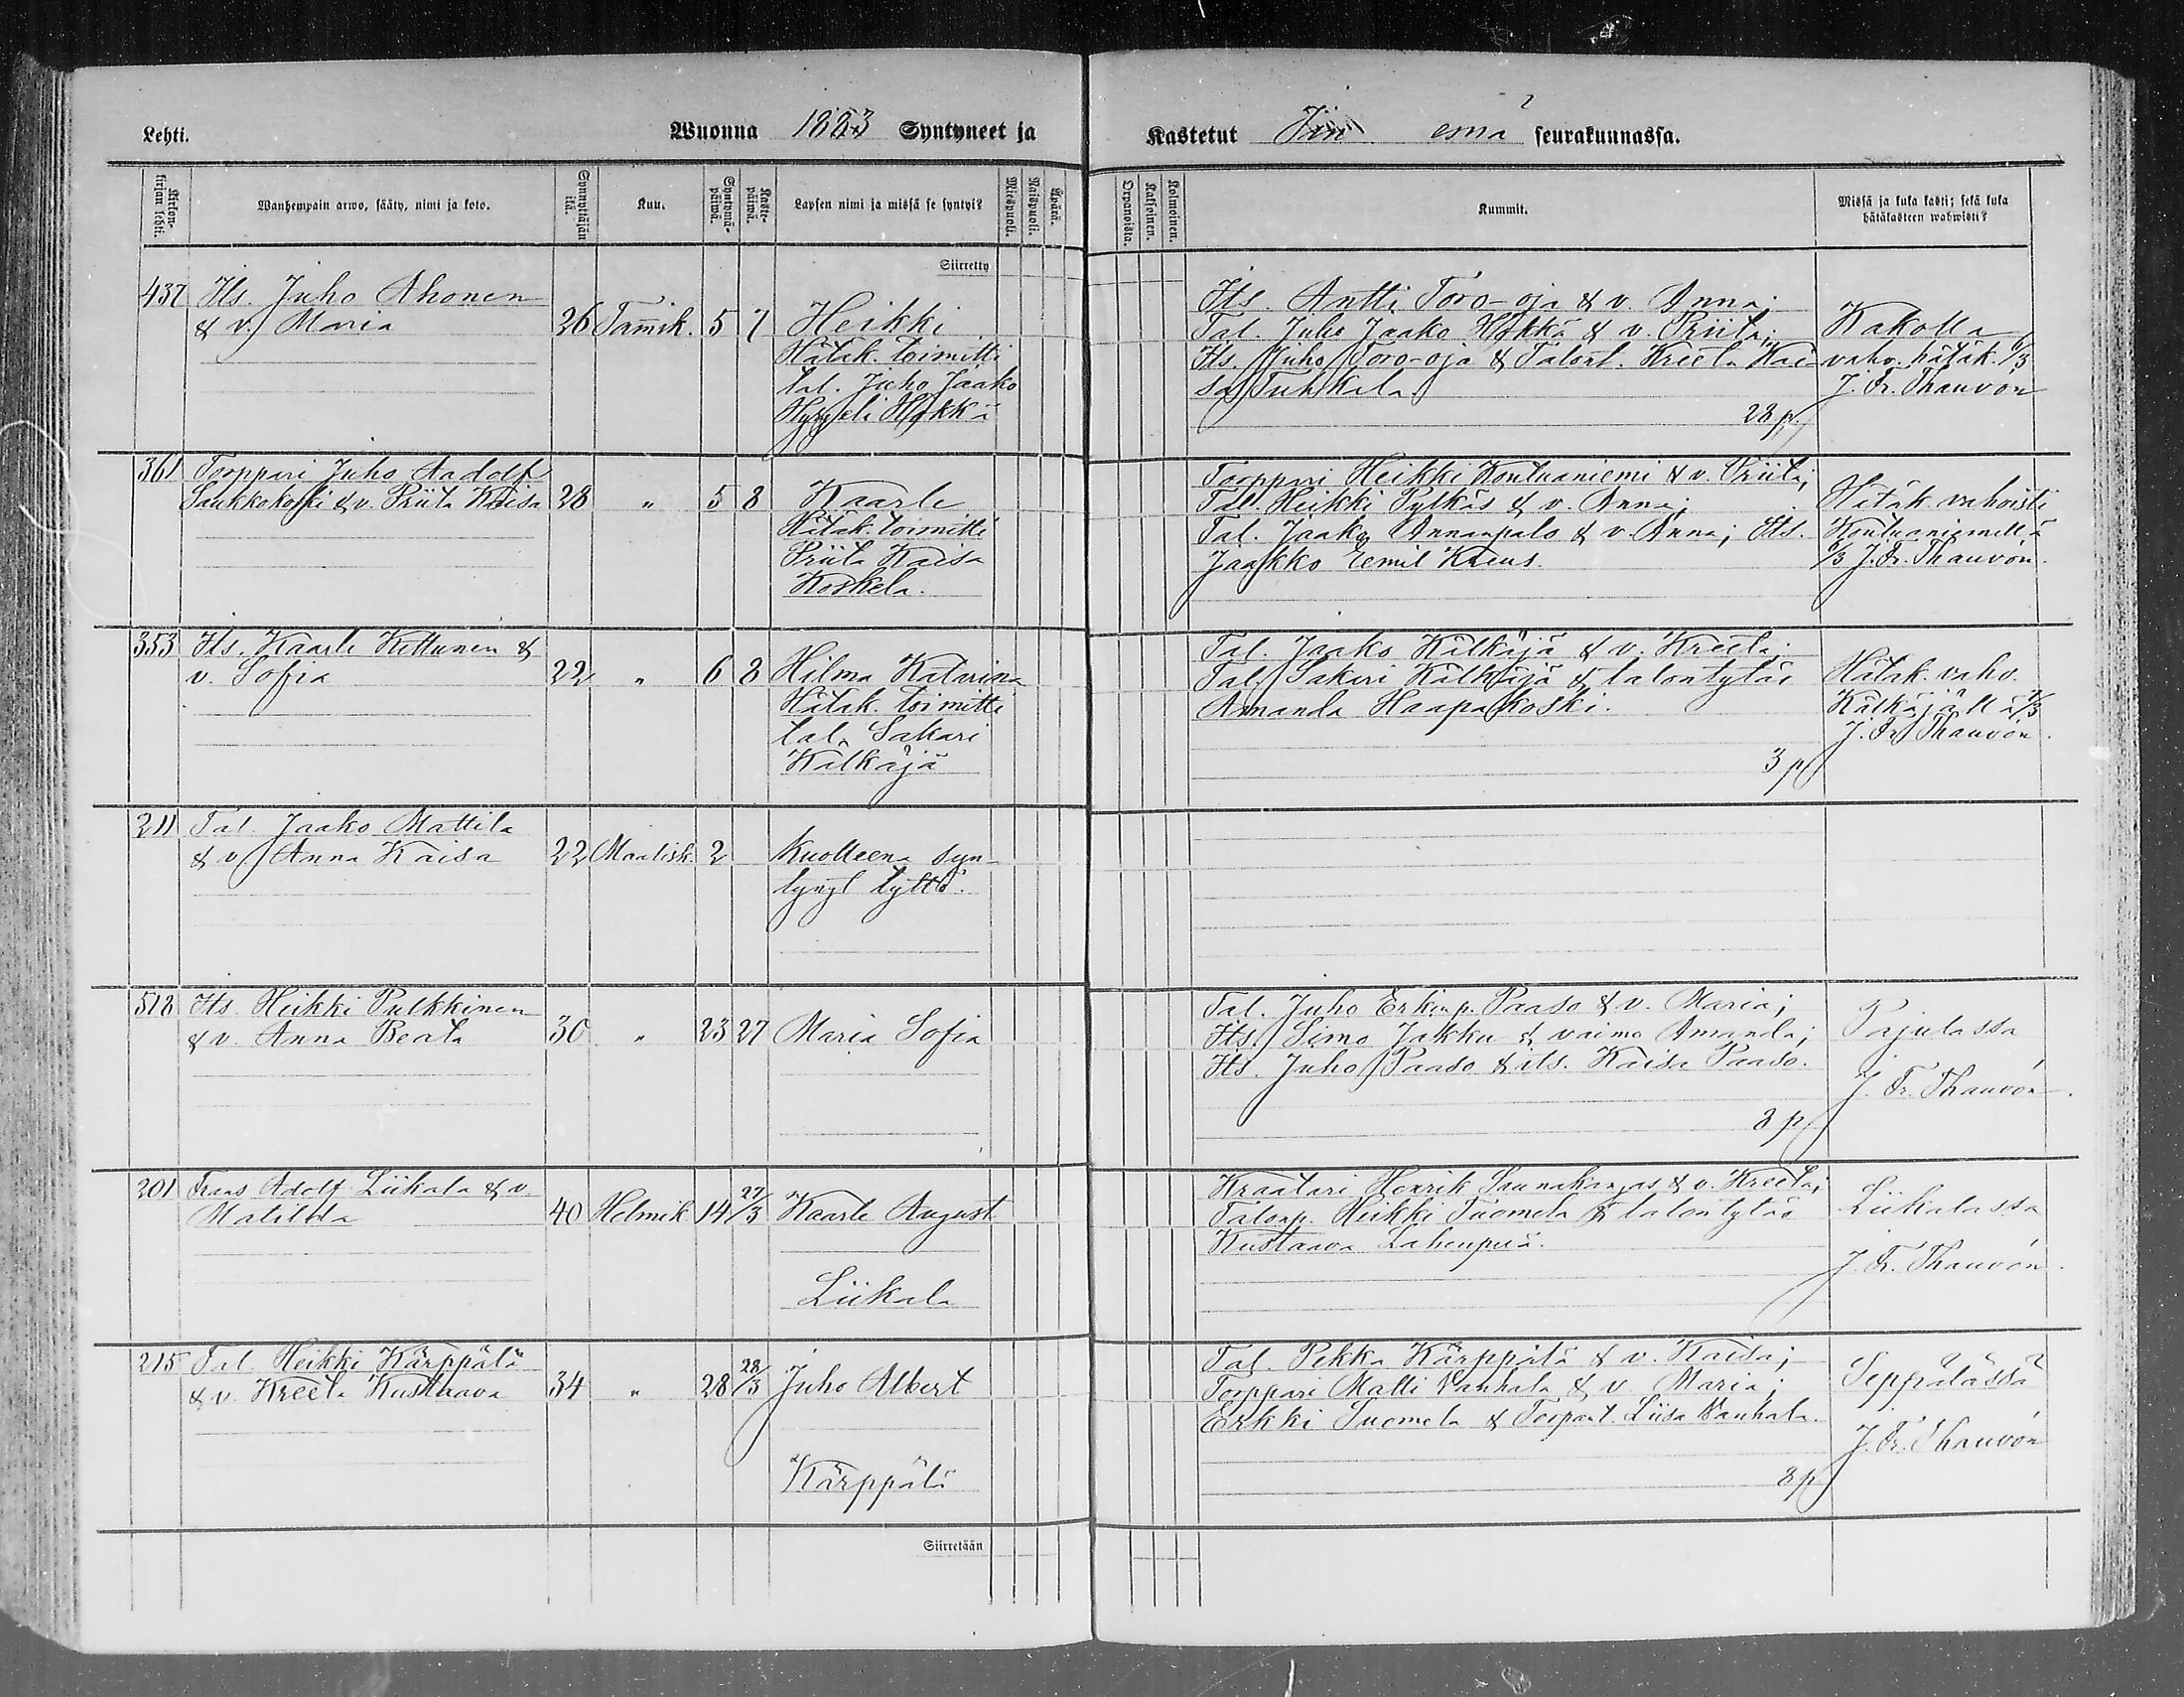 Lehti.
Wuonna 1883 Syntyneet ja
Kastetut Jin emä seurakunnassa.
Kirkon-kirjan lehti.
Wanhempain arwo, sääty, nimi ja koto.
Synnyttäjän ikä.
Kuu.
Syntymä-päiwä.
Kaste-päiwä.
Lapsen nimi ja missä se syntyi?
Miespuoli.
Waispuoli.
Äpärä.
Orpanoista.
Kaksoinen.
Kolmoinen.
Kummit.
Missä ja kuka kasti; sekä kuka
hätäkasteen wahwisti?
Siirretty
437 Its. Juho Ahonen
& v. Maria 26 Tammik. 5 7 Heikki
Hätäk. toimitti
tal. Juho Jaako
Hyryli Hökkä
Its. Antti Toro-oja & v. Anna;
Tal. Juho Jaako Hökkä & v. Priita;
Its. Juho Toro-oja & Talont. Kreeta Kai-
sa Tuhkala.
28 p.
Kakolla
vahv. hätäk. 6/3
J. Fr. Thauvón
361 Torppari Juho Aadolf
Saukkokoski & v. Priita Kaisa 28 " 5 8 Kaarle
Hätäk. toimitti
Priita Kaisa
Koskela.
Torppari Heikki Kontuaniemi & v. Priita;
Tal. Heikki Pytkäs & v. Anna;
Tal. Jaako Annanpalo & v. Anna; Its.
Jaakko Eemil Kreus.
Hätäk. vahvisti
Kontuaniemellä
6/3 J. Fr. Thauvón.
353 Its. Kaarle Kettunen &
v. Sofia 22 " 6 8 Hilma Katarina
Hätäk. toimitti
tal. Sakari
Kälkäjä
Tal. Jaako Kälkäjä & v. Kreeta;
Tal. Sakari Kälkäjä & talontytär
Amanda Haapakoski.
3 p
Hätäk. vahv.
Kälkäjällä 7/3
J. Fr. Thauvón.
211 Tal. Jaako Mattila
& v. Anna Kaisa 22 Maalisk. 2 Kuolleena syn-
tynyt tyttö.
518 Its. Heikki Pulkkinen
& v. Anna Beata 30 " 23 27 Maria Sofia
Tal. Juho Erkinp. Paaso & v. Maria;
Its. Simo Jakku & vaimo Amanda;
Its. Juho Paaso & its. Kaisa Paaso.
8 p
Pajulassa
J. Fr. Thauvón.
201 Frans Adolf Liikala & v.
Matilda 40 Helmik 14 27/3 Kaarle August
Liikala
Kraatari Henrik Saunakangas & v. Kreeta;
Talonp. Heikki Tuomela & talontytär
Kustaava Lahenperä.
Liikalassa
J. Fr. Thauvón.
215 Tal. Heikki Kärppälä
& v. Kreeta Kustaava 34 " 28 28/3 Juho Albert
Kärppälä
Tal. Pekka Kärppälä & v. Kaisa;
Torppari Matti Vanhala & v. Maria;
Erkki Tuomela & Torpart. Liisa Vanhala.
8 p
Seppälässä
J. Fr. Thauvón
Siirretään